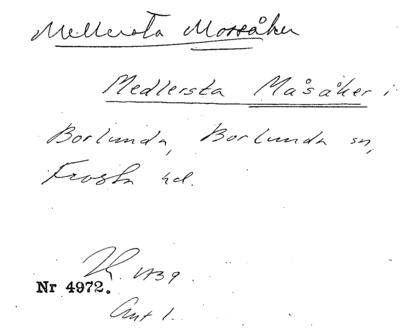 Mellersta Mossåker
Medlersta Måsåker i
Borlunda, Borlunda sn,
Frosta hd.
1739
Nr 4972.
Ant 1.